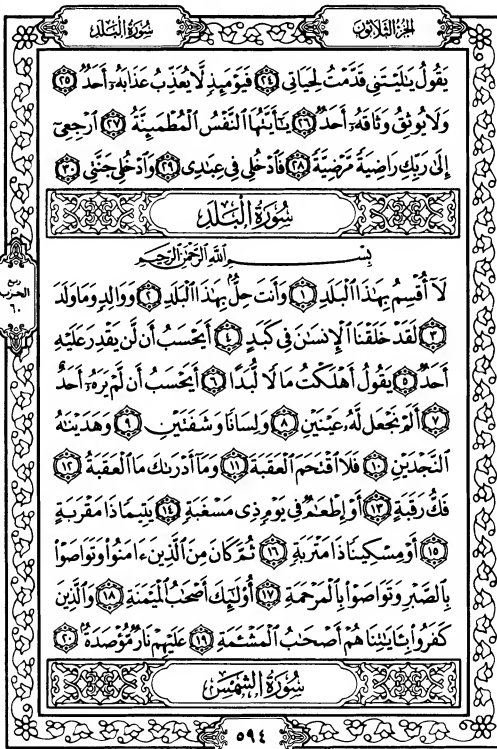 سُورَةُ البَلَد
الجُزْءُ الثَّلَاثُونَ
يَقُولُ يَٰلَيْتَنِى قَدَّمْتُ لِحَيَاتِى ٢٤ فَيَوْمَئِذٍ لَّا يُعَذِّبُ عَذَابَهُۥٓ أَحَدٌ ٢٥
وَلَا يُوثِقُ وَثَاقَهُۥٓ أَحَدٌ ٢٦ يَٰٓأَيَّتُهَا ٱلنَّفْسُ ٱلْمُطْمَئِنَّةُ ٢٧ ٱرْجِعِىٓ
إِلَىٰ رَبِّكِ رَاضِيَةً مَّرْضِيَّةً ٢٨ فَٱدْخُلِى فِى عِبَٰدِى ٢٩ وَٱدْخُلِى جَنَّتِى ٣٠
سُورَةُ الْبَلَدِ
بِسْمِ ٱللَّهِ ٱلرَّحْمَٰنِ ٱلرَّحِيمِ
لَآ أُقْسِمُ بِهَٰذَا ٱلْبَلَدِ ١ وَأَنتَ حِلٌّۢ بِهَٰذَا ٱلْبَلَدِ ٢ وَوَالِدٍ وَمَا وَلَدَ
٣ لَقَدْ خَلَقْنَا ٱلْإِنسَٰنَ فِى كَبَدٍ ٤ أَيَحْسَبُ أَن لَّن يَقْدِرَ عَلَيْهِ
أَحَدٌ ٥ يَقُولُ أَهْلَكْتُ مَالًا لُّبَدًا ٦ أَيَحْسَبُ أَن لَّمْ يَرَهُۥٓ أَحَدٌ
٧ أَلَمْ نَجْعَل لَّهُۥ عَيْنَيْنِ ٨ وَلِسَانًا وَشَفَتَيْنِ ٩ وَهَدَيْنَٰهُ
ٱلنَّجْدَيْنِ ١٠ فَلَا ٱقْتَحَمَ ٱلْعَقَبَةَ ١١ وَمَآ أَدْرَىٰكَ مَا ٱلْعَقَبَةُ ١٢
فَكُّ رَقَبَةٍ ١٣ أَوْ إِطْعَٰمٌ فِى يَوْمٍ ذِى مَسْغَبَةٍ ١٤ يَتِيمًا ذَا مَقْرَبَةٍ
١٥ أَوْ مِسْكِينًا ذَا مَتْرَبَةٍ ١٦ ثُمَّ كَانَ مِنَ ٱلَّذِينَ ءَامَنُوا۟ وَتَوَاصَوْا۟
بِٱلصَّبْرِ وَتَوَاصَوْا۟ بِٱلْمَرْحَمَةِ ١٧ أُو۟لَٰٓئِكَ أَصْحَٰبُ ٱلْمَيْمَنَةِ ١٨ وَٱلَّذِينَ
كَفَرُوا۟ بِـَٔايَٰتِنَا هُمْ أَصْحَٰبُ ٱلْمَشْـَٔمَةِ ١٩ عَلَيْهِمْ نَارٌ مُّؤْصَدَةٌۢ ٢٠
سُورَةُ الشَّمْسِ
٥٩٤
ربع
الحزب
٦٠